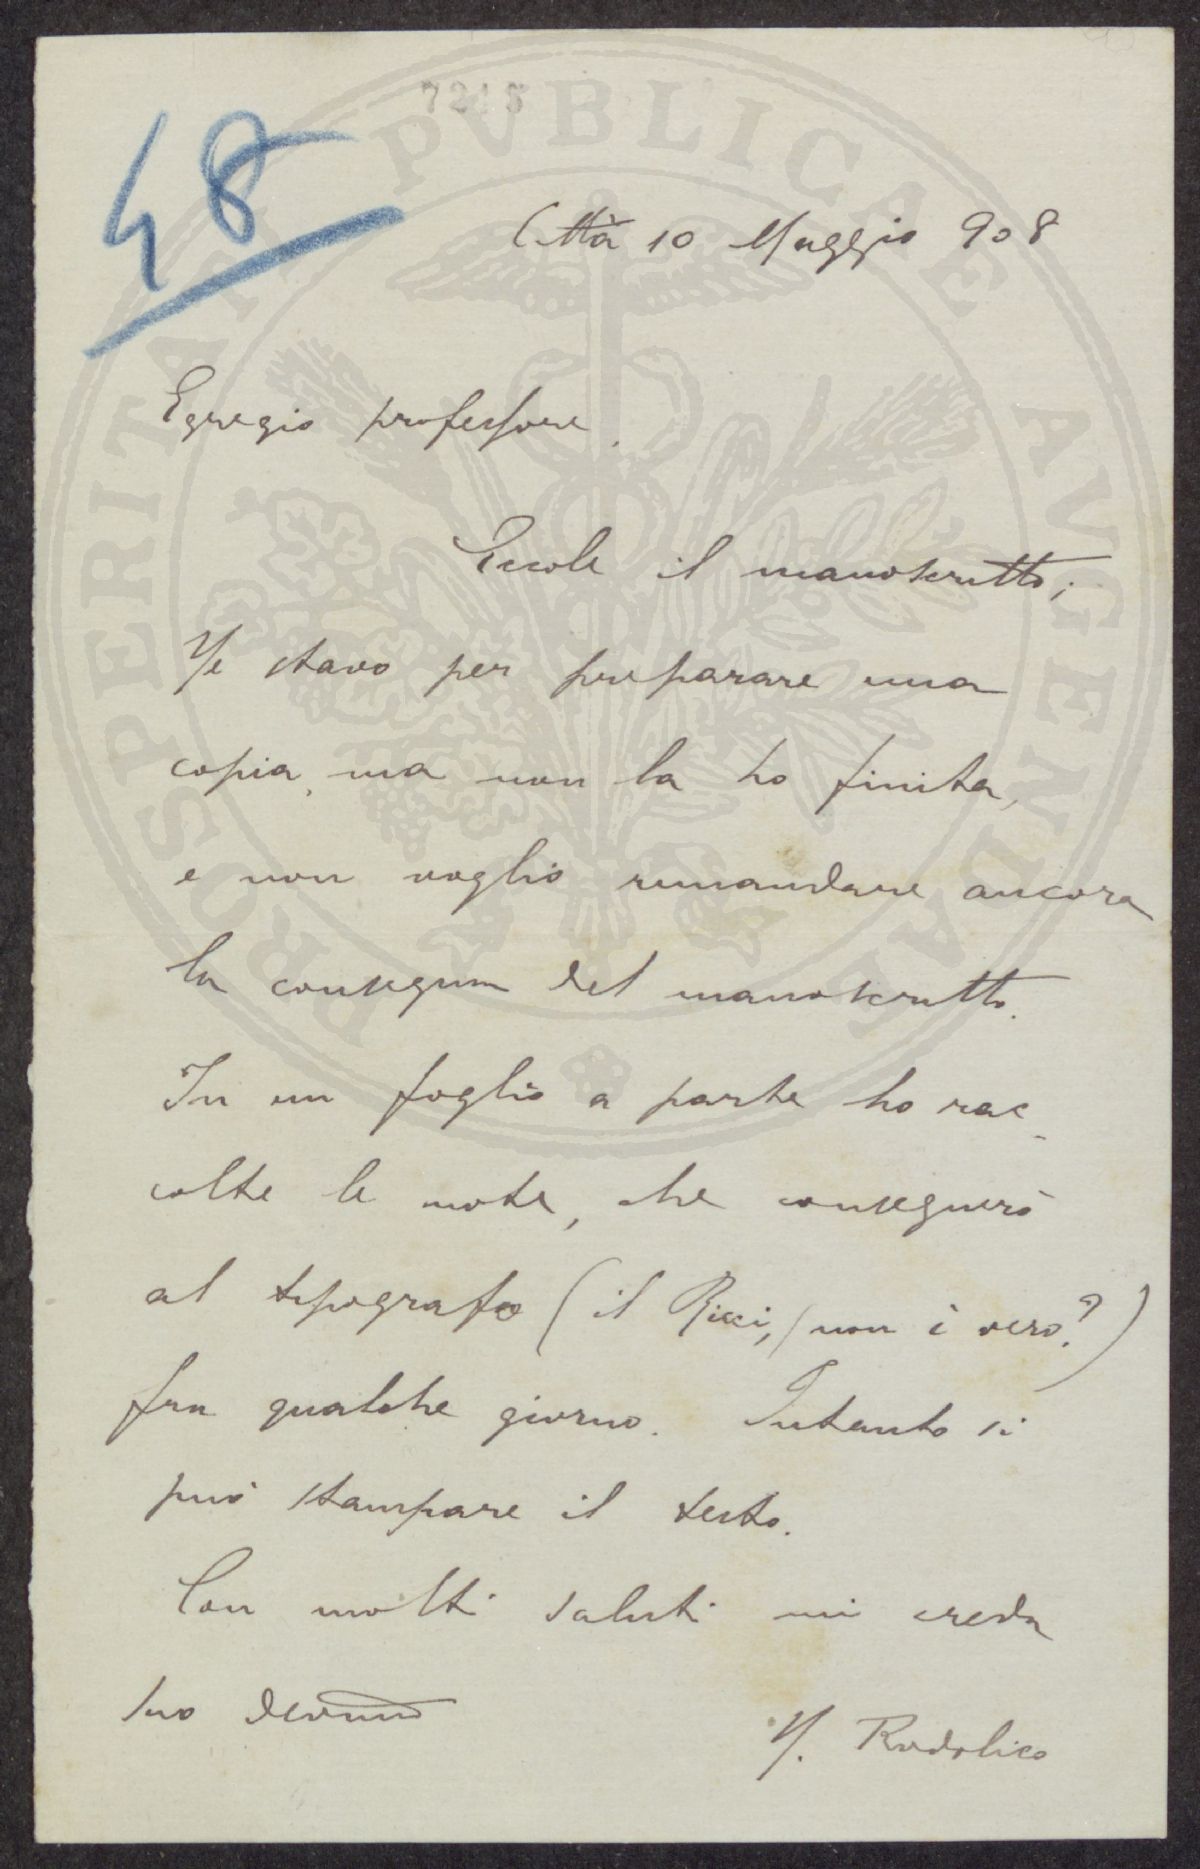 7215
48
Città 10 Maggio 908
Egregio professore.
Eccole il manoscritto;
Ne stavo per preparare una
copia, ma non la ho finita,
e non voglio rimandare ancora
la consegna del manoscritto.
In un foglio a parte ho rac-
colte le note, che consegnerò
al tipografo (il Ricci, non è vero?)
fra qualche giorno. Intanto si
può stampare il testo.
Con molti saluti mi creda
suo devmo
N. Rodolico
PROSPERITATI PVBLICAE AVGENDAE